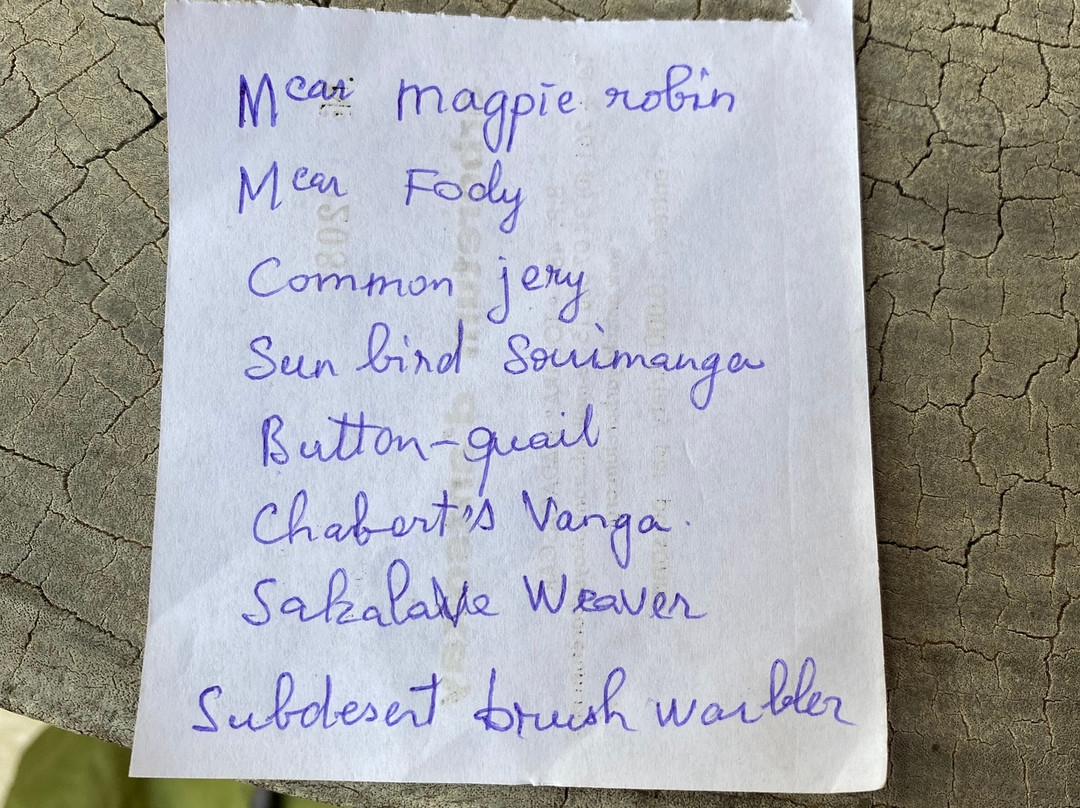 Mcar magpie robin
Mcar Fody
Common jery
Sun bird Souimanga
Button-quail
Chabert's Vanga.
Sakalave Weaver
Subdesert brush warbler